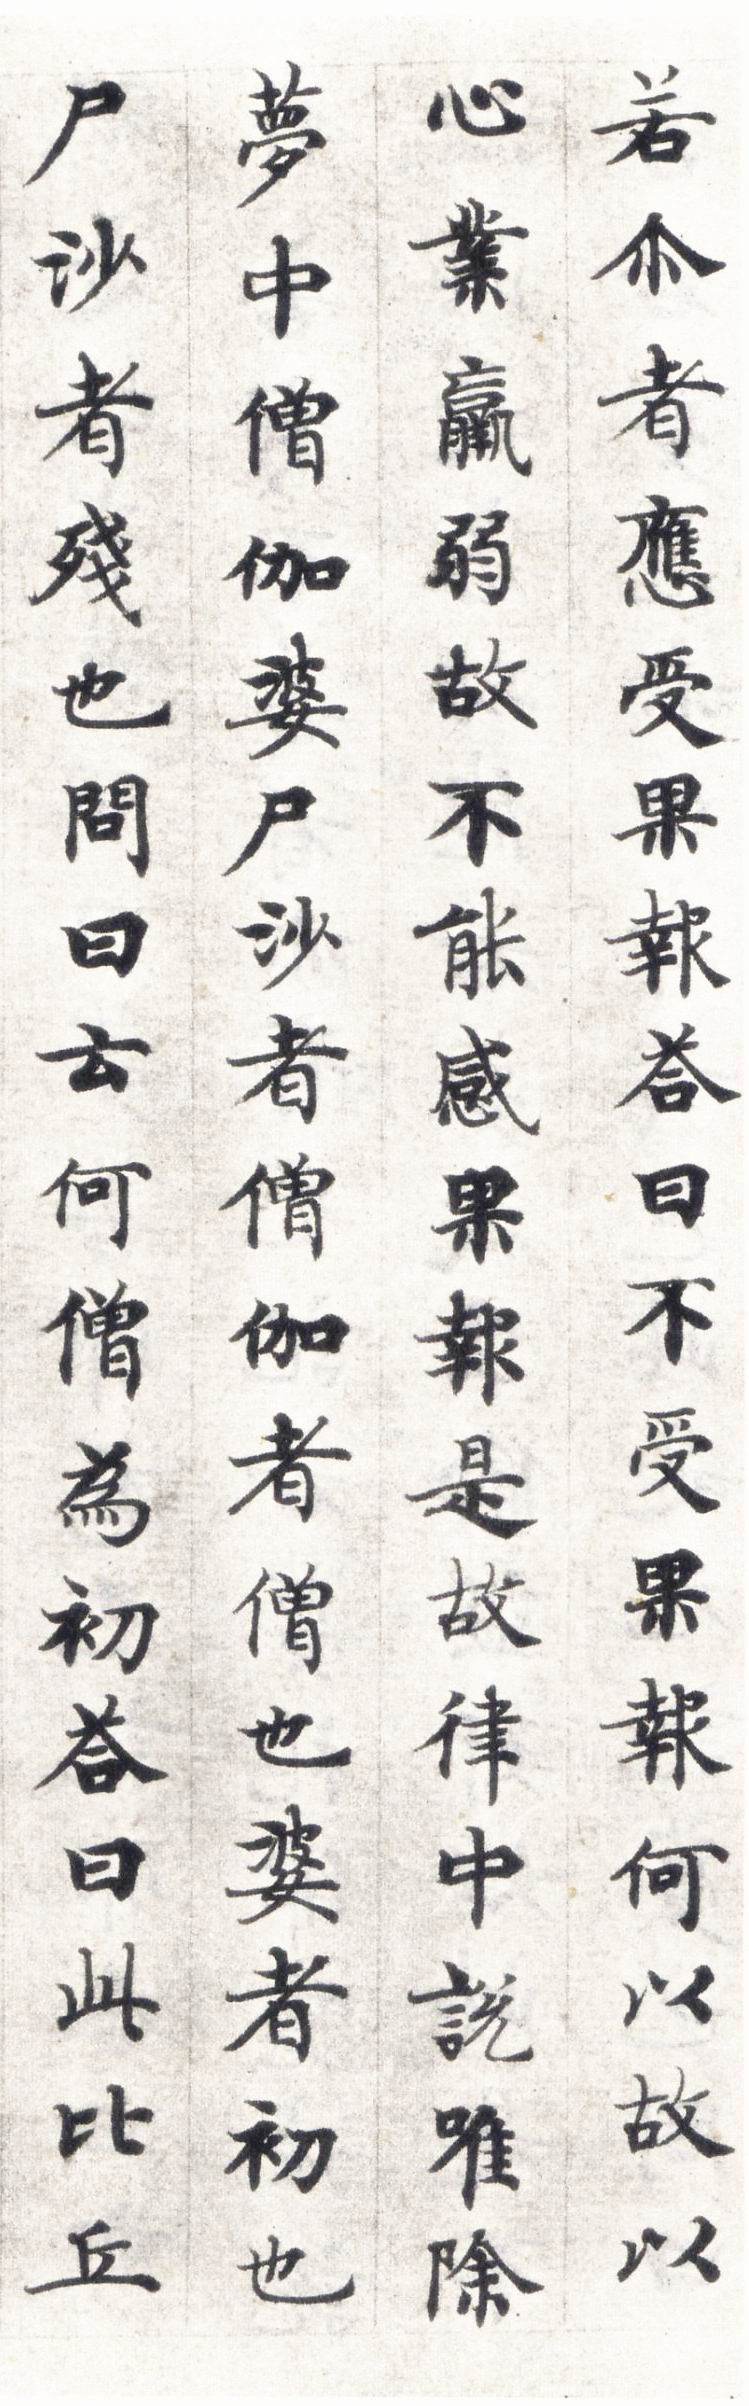 若尒者應受果報荅曰不受果報何以故以
心業羸弱故不能感果報是故律中說唯除
夢中僧伽婆尸沙者僧伽者僧也婆者初也
尸沙者殘也問曰云何僧為初荅曰此比丘